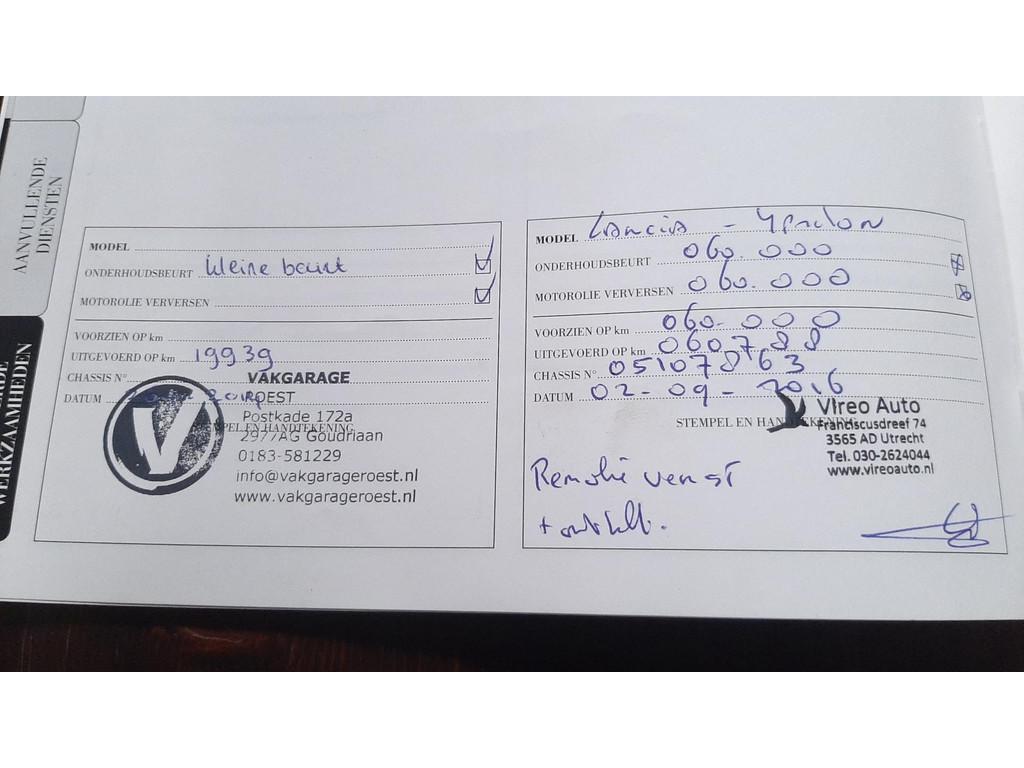 AANVULLENDE
DIENSTEN
WERKZAAMHEDEN
MODEL
ONDERHOUDSBEURT kleine beurt
MOTOROLIE VERVERSEN
VOORZIEN OP km
UITGEVOERD OP km 19939
CHASSIS N°.
DATUM
STEMPEL EN HANDTEKENING
VAKGARAGE
ROEST
Postkade 172a
2977AG Goudriaan
0183-581229
info@vakgarageroest.nl
www.vakgarageroest.nl
MODEL Lancia - Ypsilon
ONDERHOUDSBEURT 060.000
MOTOROLIE VERVERSEN 060.000
VOORZIEN OP km 060.000
UITGEVOERD OP km 060788
CHASSIS N°. 05107863
DATUM 02-09-2016
STEMPEL EN HANDTEKENING
Vireo Auto
Franciscusdreef 74
3565 AD Utrecht
Tel. 030-2624044
www.vireoauto.nl
Remolie ververst
+ ontlucht.